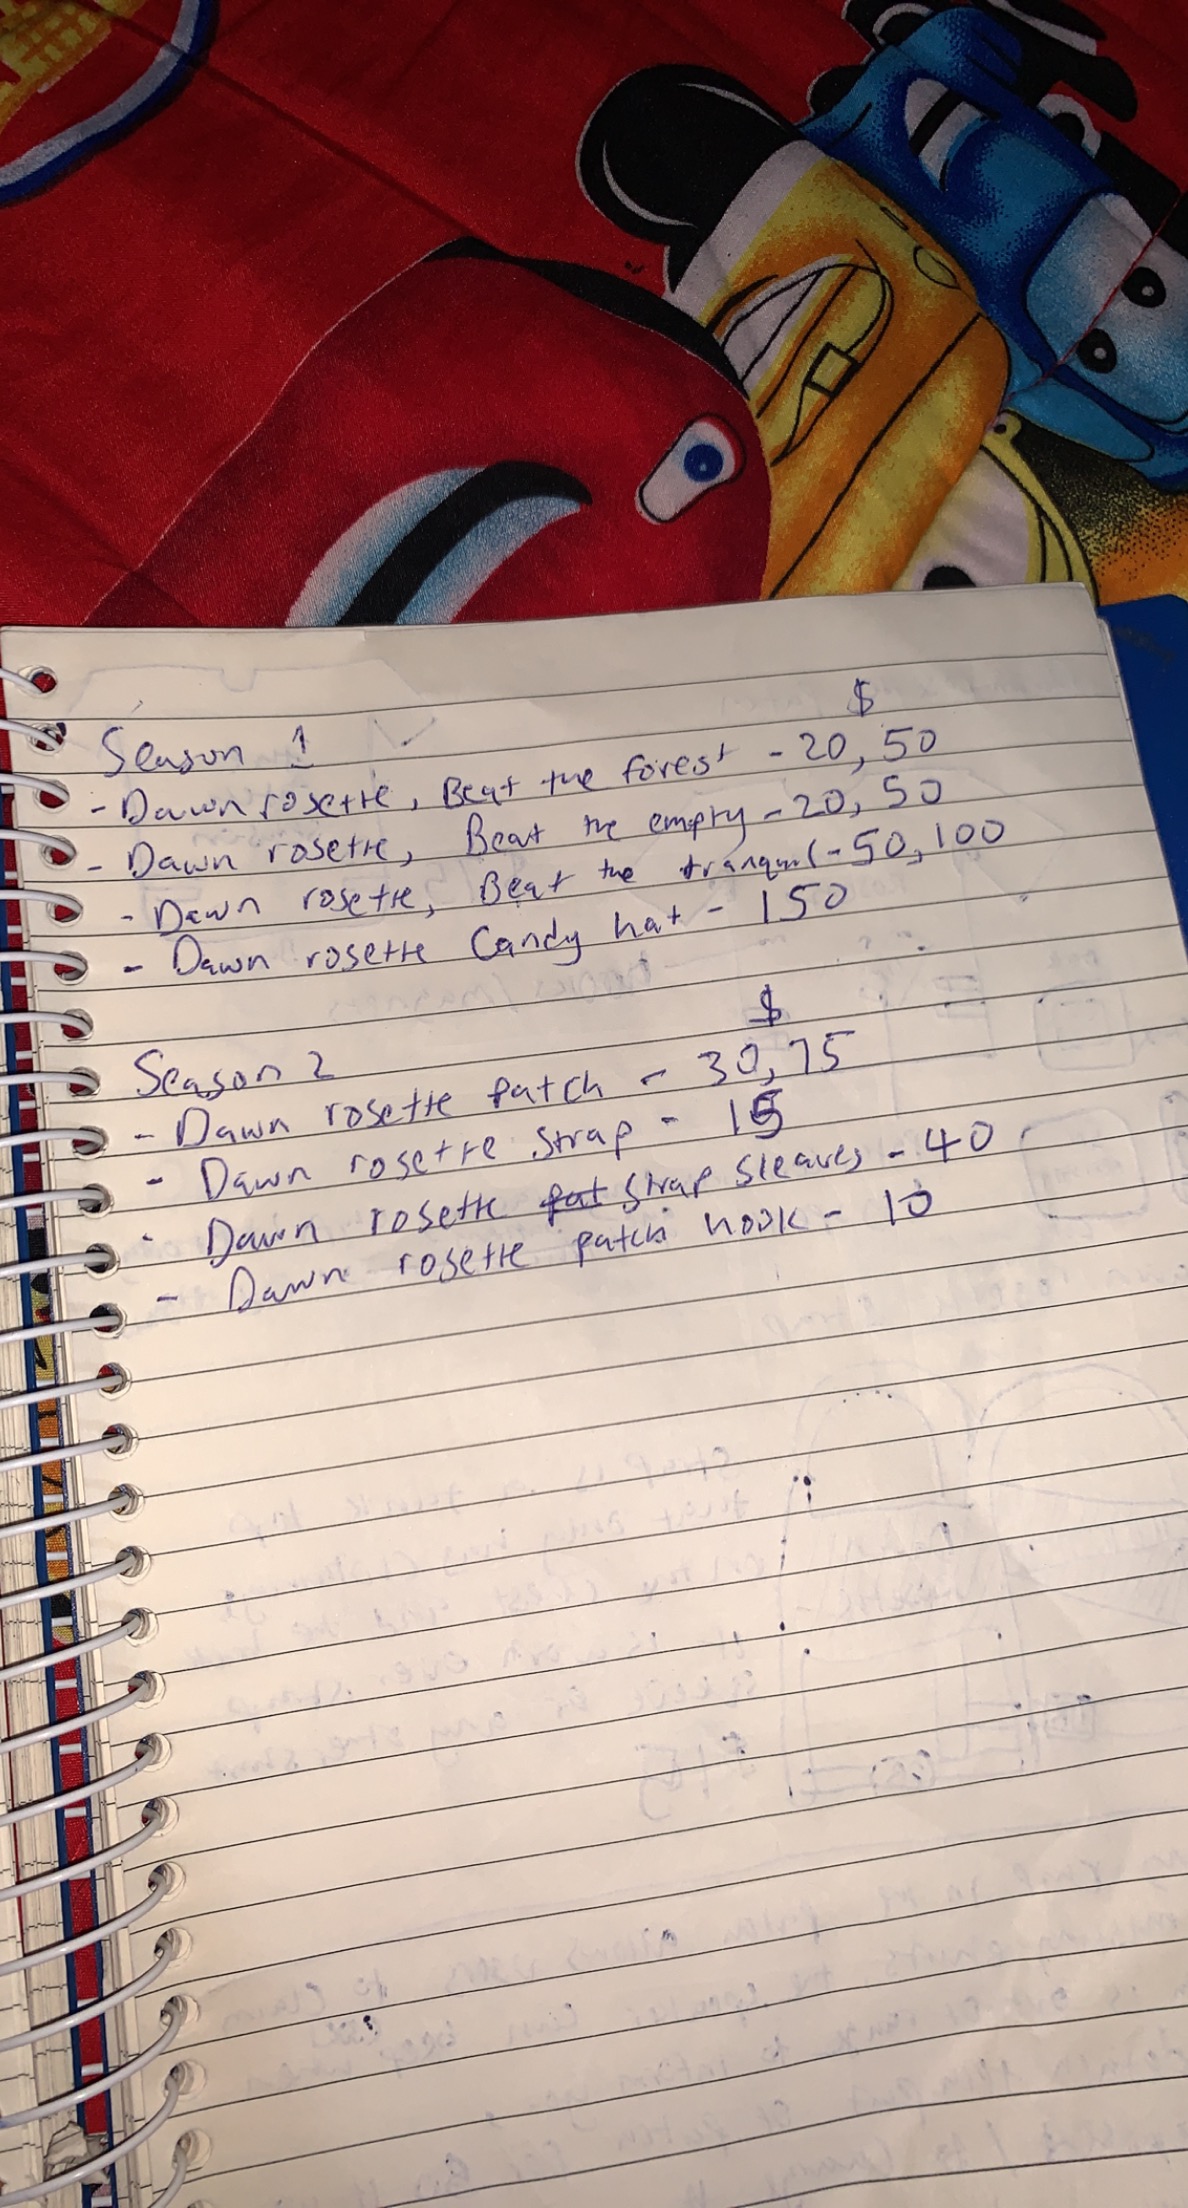 $
Season 1
- Dawn rosette, Beat the forest - 20, 50
- Dawn rosette, Beat the empty - 20, 50
- Dawn rosette, Beat the tranquil - 50, 100
- Dawn rosette Candy hat - 150
$
Season 2
- Dawn rosette patch - 30, 75
- Dawn rosette strap - 15
- Dawn rosette pat strap sleaves - 40
- Dawn rosette patch hook - 10